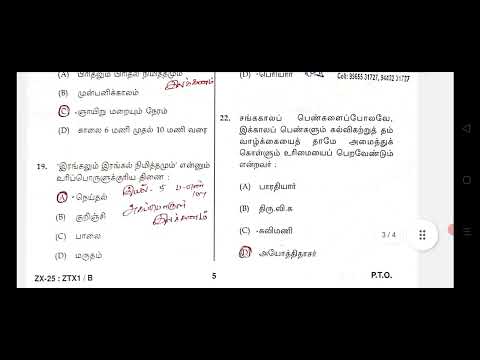 (A) பிரிதலும் பிரிதல் நிமித்தமும்
இலக்கணம்
(B) முன்பனிக்காலம்
(C) ஞாயிறு மறையும் நேரம்
(D) காலை 6 மணி முதல் 10 மணி வரை
19. 'இரங்கலும் இரங்கல் நிமித்தமும்' என்னும்
உரிப்பொருளுக்குரிய திணை :
(A) நெய்தல்
இயல் - 5
(B) குறிஞ்சி
அகப்பொருள்
இலக்கணம்
(C) பாலை
(D) மருதம்
ZX-25 : ZTX1 / B
(D) பெரியார்
Cell: 99655 31727, 94432 31727
22. சங்ககாலப் பெண்களைப்போலவே,
இக்காலப் பெண்களும் கல்விகற்றுத் தம்
வாழ்க்கையைத் தாமே அமைத்துக்
கொள்ளும் உரிமையைப் பெறவேண்டும்
என்றவர் :
(A) பாரதியார்
(B) திரு.வி.க
(C) கவிமணி
3 / 4
(D) அயோத்திதாசர்
5
P.T.O.